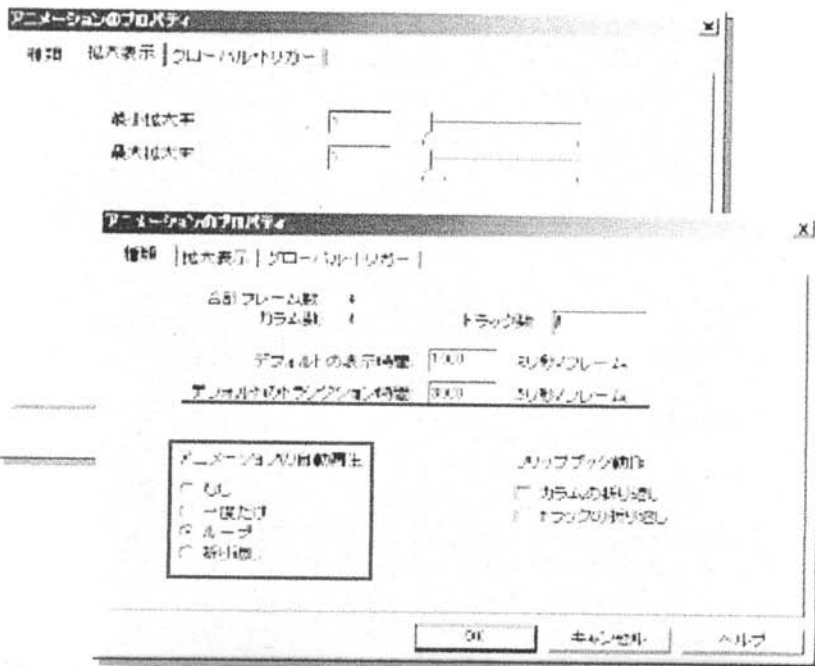 アニメーションのプロパティ
種類 拡大表示 グローバル・トリガー
最小拡大率
最大拡大率
アニメーションのプロパティ
種類 拡大表示 グローバル・トリガー
合計フレーム数
カラム数 トラック数
デフォルトの表示時間: 1000 ミリ秒/フレーム
デフォルトのトランジション時間: 3000 ミリ秒/フレーム
アニメーションの自動再生 フリップブック動作
なし カラムの折り返し
一度だけ トラックの折り返し
ループ
折り返し
OK キャンセル ヘルプ